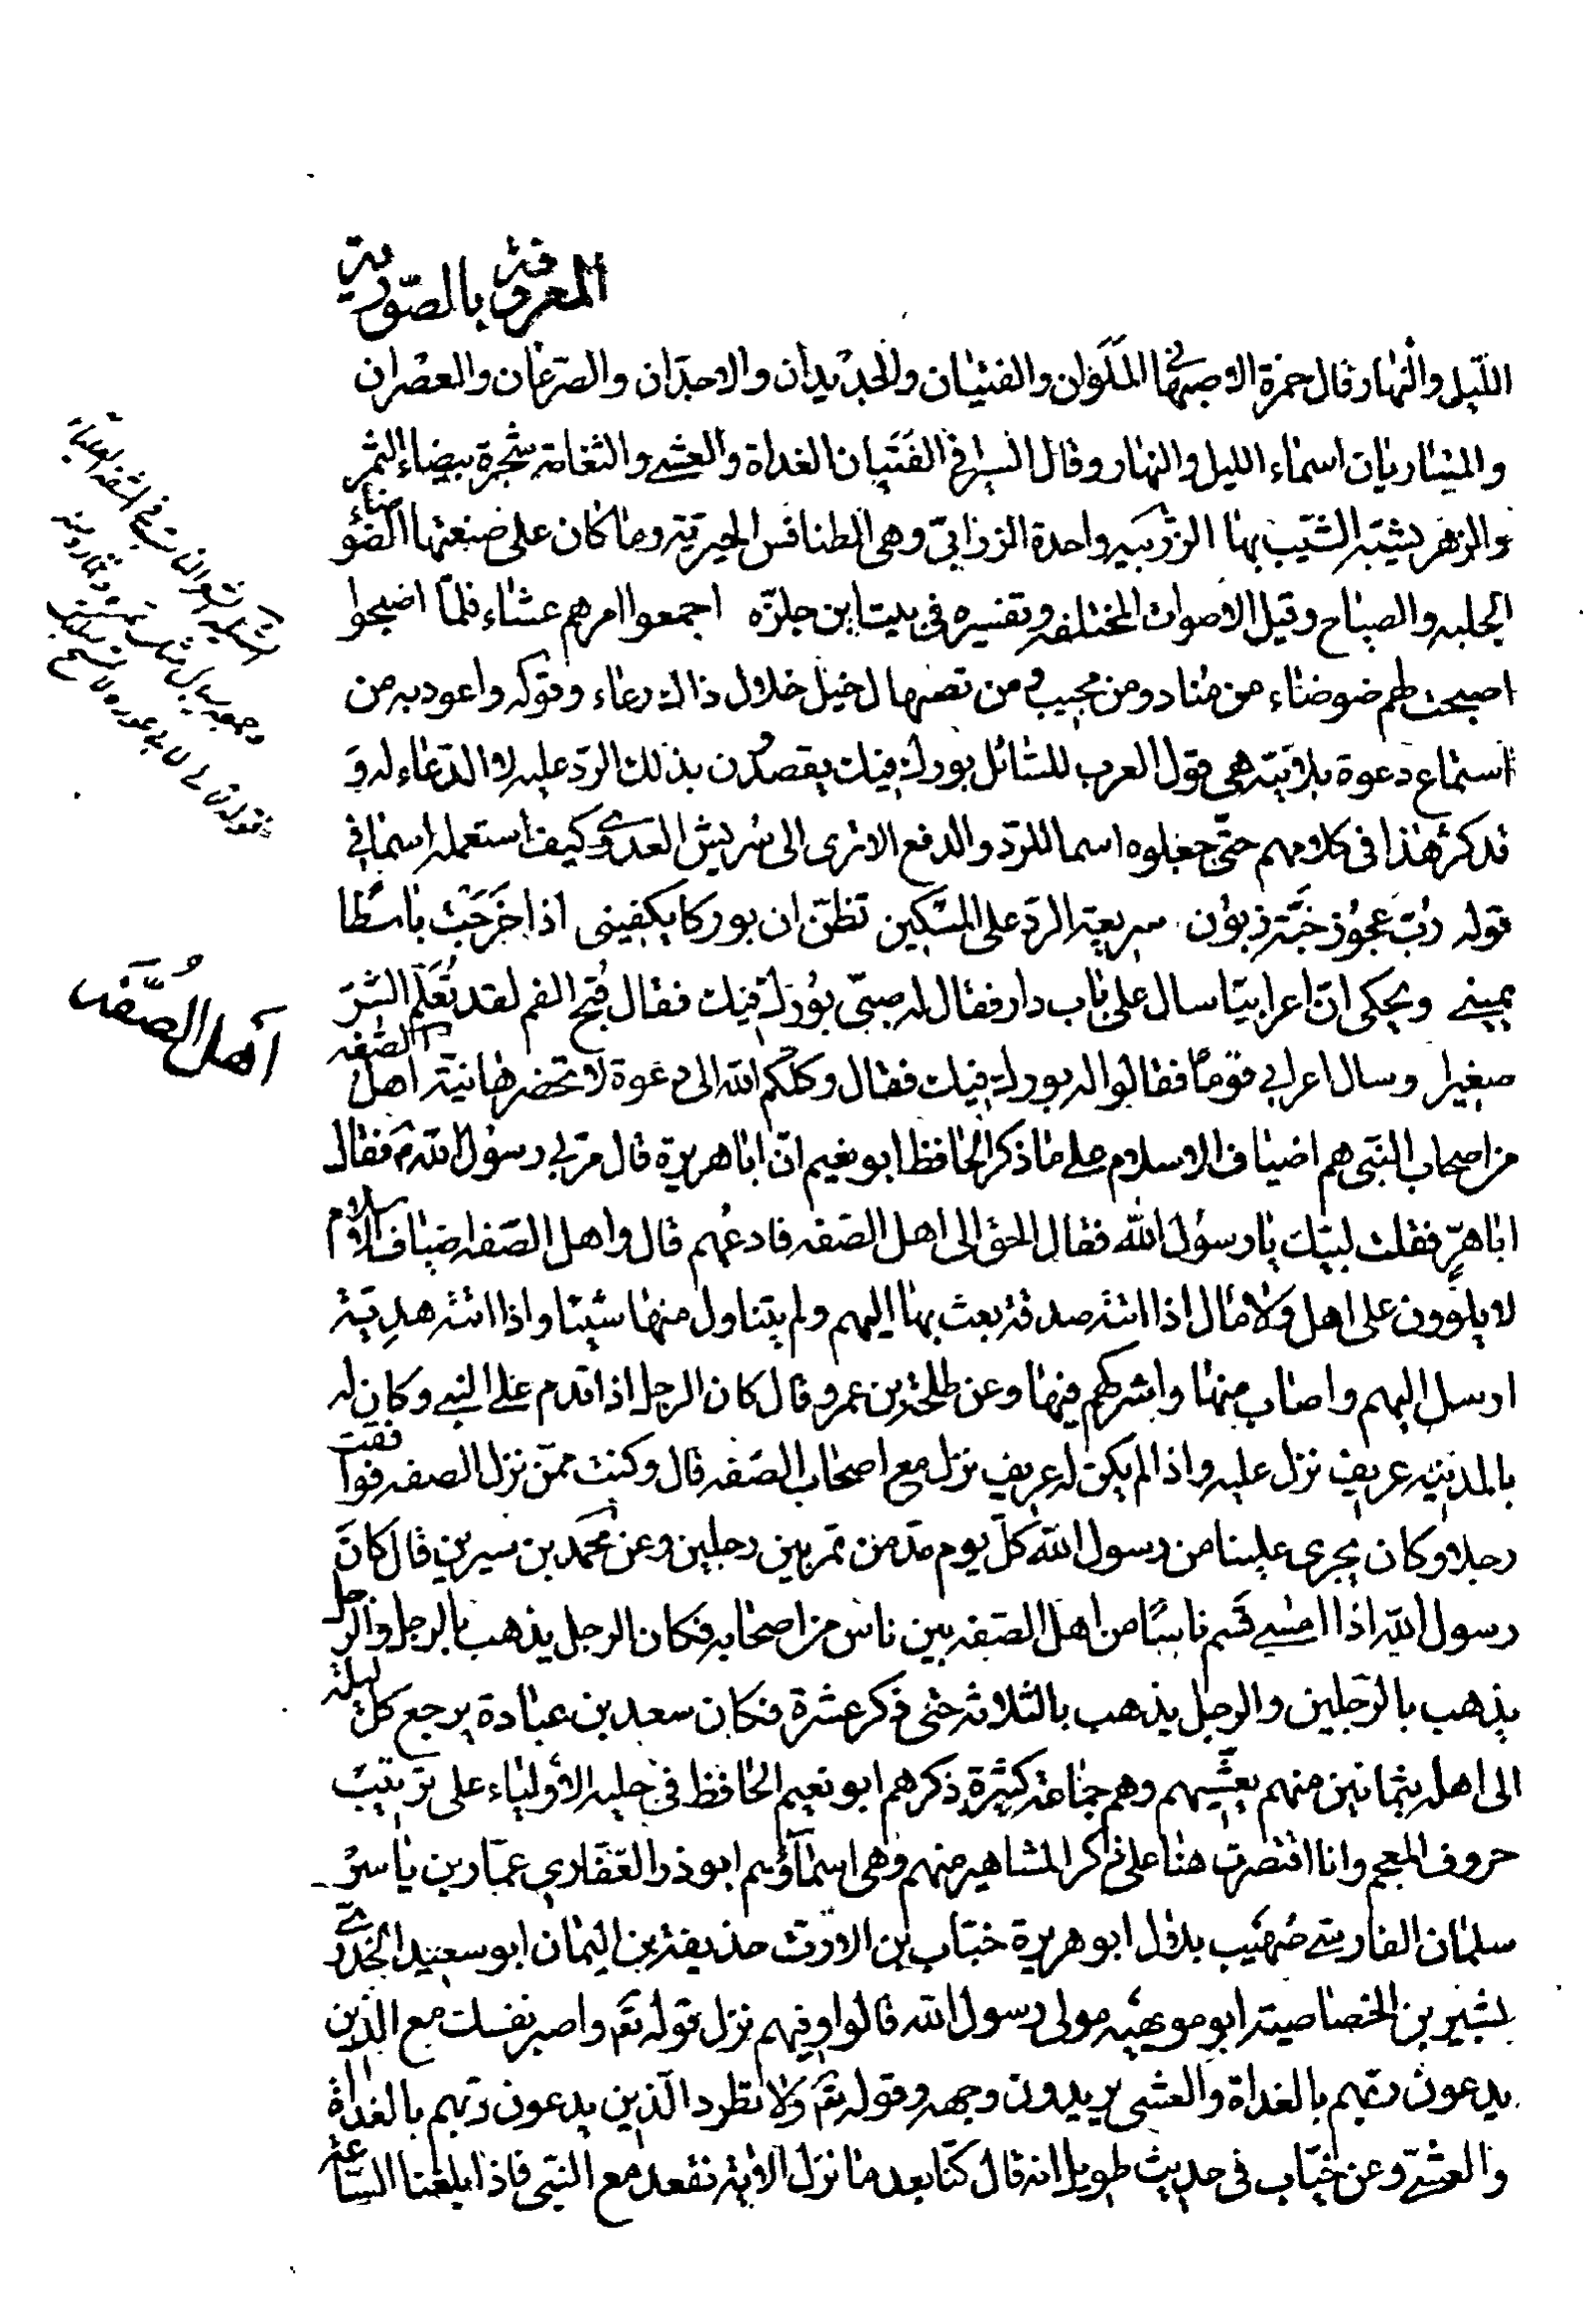 المعروفة بالصّورية
اللّيل والنّهار قال حمزة الاصبهانى الملَوان والفتيان والجديدان والاجدّان والصّرعان والعصْران
اسماء الليل والنهار وقال السيرافي الفَتَيان الغداة والعشي والثغامة شجرة بيضاء الثمر
والزهر يشبّه الشّيب بها الزّربيه واحدة الزرابىّ وهى الطنافس الحيرية وما كان على صنعتها الضوضاء
الجلبه والصياح وقيل الاصوات المختلفه وتفسيره فى بيت ابن حلزّه اجمعوا امرهم عشاء فلمّا اصبحوا
اصبحت لهم ضوضاء من مناد ومن مجيب ومن تصهال خيل خلال ذاك رغاء وقوله واعوذ به من
استماع دعوة بلاقية هى قول العرب للسّائل بورك فيك يقصدُون بذلك الردّ عليه لا الدّعاء له وَ
قد كثر هذا فى كلامهم حتّى جعلوه اسما للردّ والدفع الا ترى الى شريش العدوى وكيف استعمله اسما في
قوله ربّ عجوز خبّة زبون سريعة الردّ على المسكين تظنّ ان بوركا يكفينى اذا خَرَجَتْ باسطًا
يمينے ويحكى انّ اعرابيّا سال على باب دار فقال له صبىّ بُورك فيك فقال قُبح الفم لقد تُعُلّم الشرّ
صغيرا وسال اعرابي قومًا فقالوا له بورك فيك فقال وكلكم الله الى دعوة لا تحضرها نيّة اهل الصّفه
من اصحاب النّبى هم اضياف الاسلام على ما ذكر الحافظ ابو نعيم انّ ابا هريرة قال مرّ بي رسول اللّه ص فقال
ابا هِرٍّ فقلت لبيّك يا رسول الله فقال الحق الى اهل الصّفه فادعُهم قال واهل الصّفه اضياف الاسلام
لا يلوون على اهل ولا مال اذا اتته صدقة بعث بها اليهم ولم يتناول منها شيئا واذا اتته هديّة
ارسل اليهم واصاب منها واشركهم فيها وعن طلحة بن عمرو قال كان الرجل اذا قدم على النبي وكان له
بالمدينه عريف نزل عليه واذا لم يكن له عريف نزل مع اصحاب الصّفه قال وكنت ممّن نزل الصفه فوافقت
رجلا وكان يجرى علينا من رسول اللّه كلّ يوم مدّ من تمر بين رجلين وعن محمّد بن سيرين قال كانَ
رسول اللّه اذا امسے قسّم ناسًا من اهل الصّفه بين ناس من اصحابه فكان الرجل يذهب بالرجل والرّجل
يذهب بالرّجلين والرجل يذهب بالثلاثه حتى ذكر عشرة فكان سعد بن عبادة يرجع كلّ ليلة
الى اهله بثمانين منهم يعشّيهم وهم جماعة كثيرة ذكرهم ابو نعيم الحافظ فى حليه الاولياء على ترتيب
حروف المعجم وانا اقتصرت هنا على ذكر المشاهير منهم وهى اسماؤهم ابو ذر الغفارى عمّار بن ياسر
سلمان الفارسے صُهَيب بلال ابو هريرة خبّاب بن الارت حذيفة بن اليمان ابو سعيد الخدرے
بشير بن الخصاصية ابو مويهبه مولى رسول اللّه قالوا وفيهم نزل قوله تع واصبر نفسك مع الذين
يدعون ربّهم بالغداة والعشى يريدون وجهه وقوله تع ولا تطرد الّذين يدعون ربهم بالغداة
والعشىّ وعن خبّاب فى حديث طويل انه قال كنّا بعد ما نزل الاية نقعد مع النبّى فاذا بلغنا السّاعة
اَهل الصُّفَّه